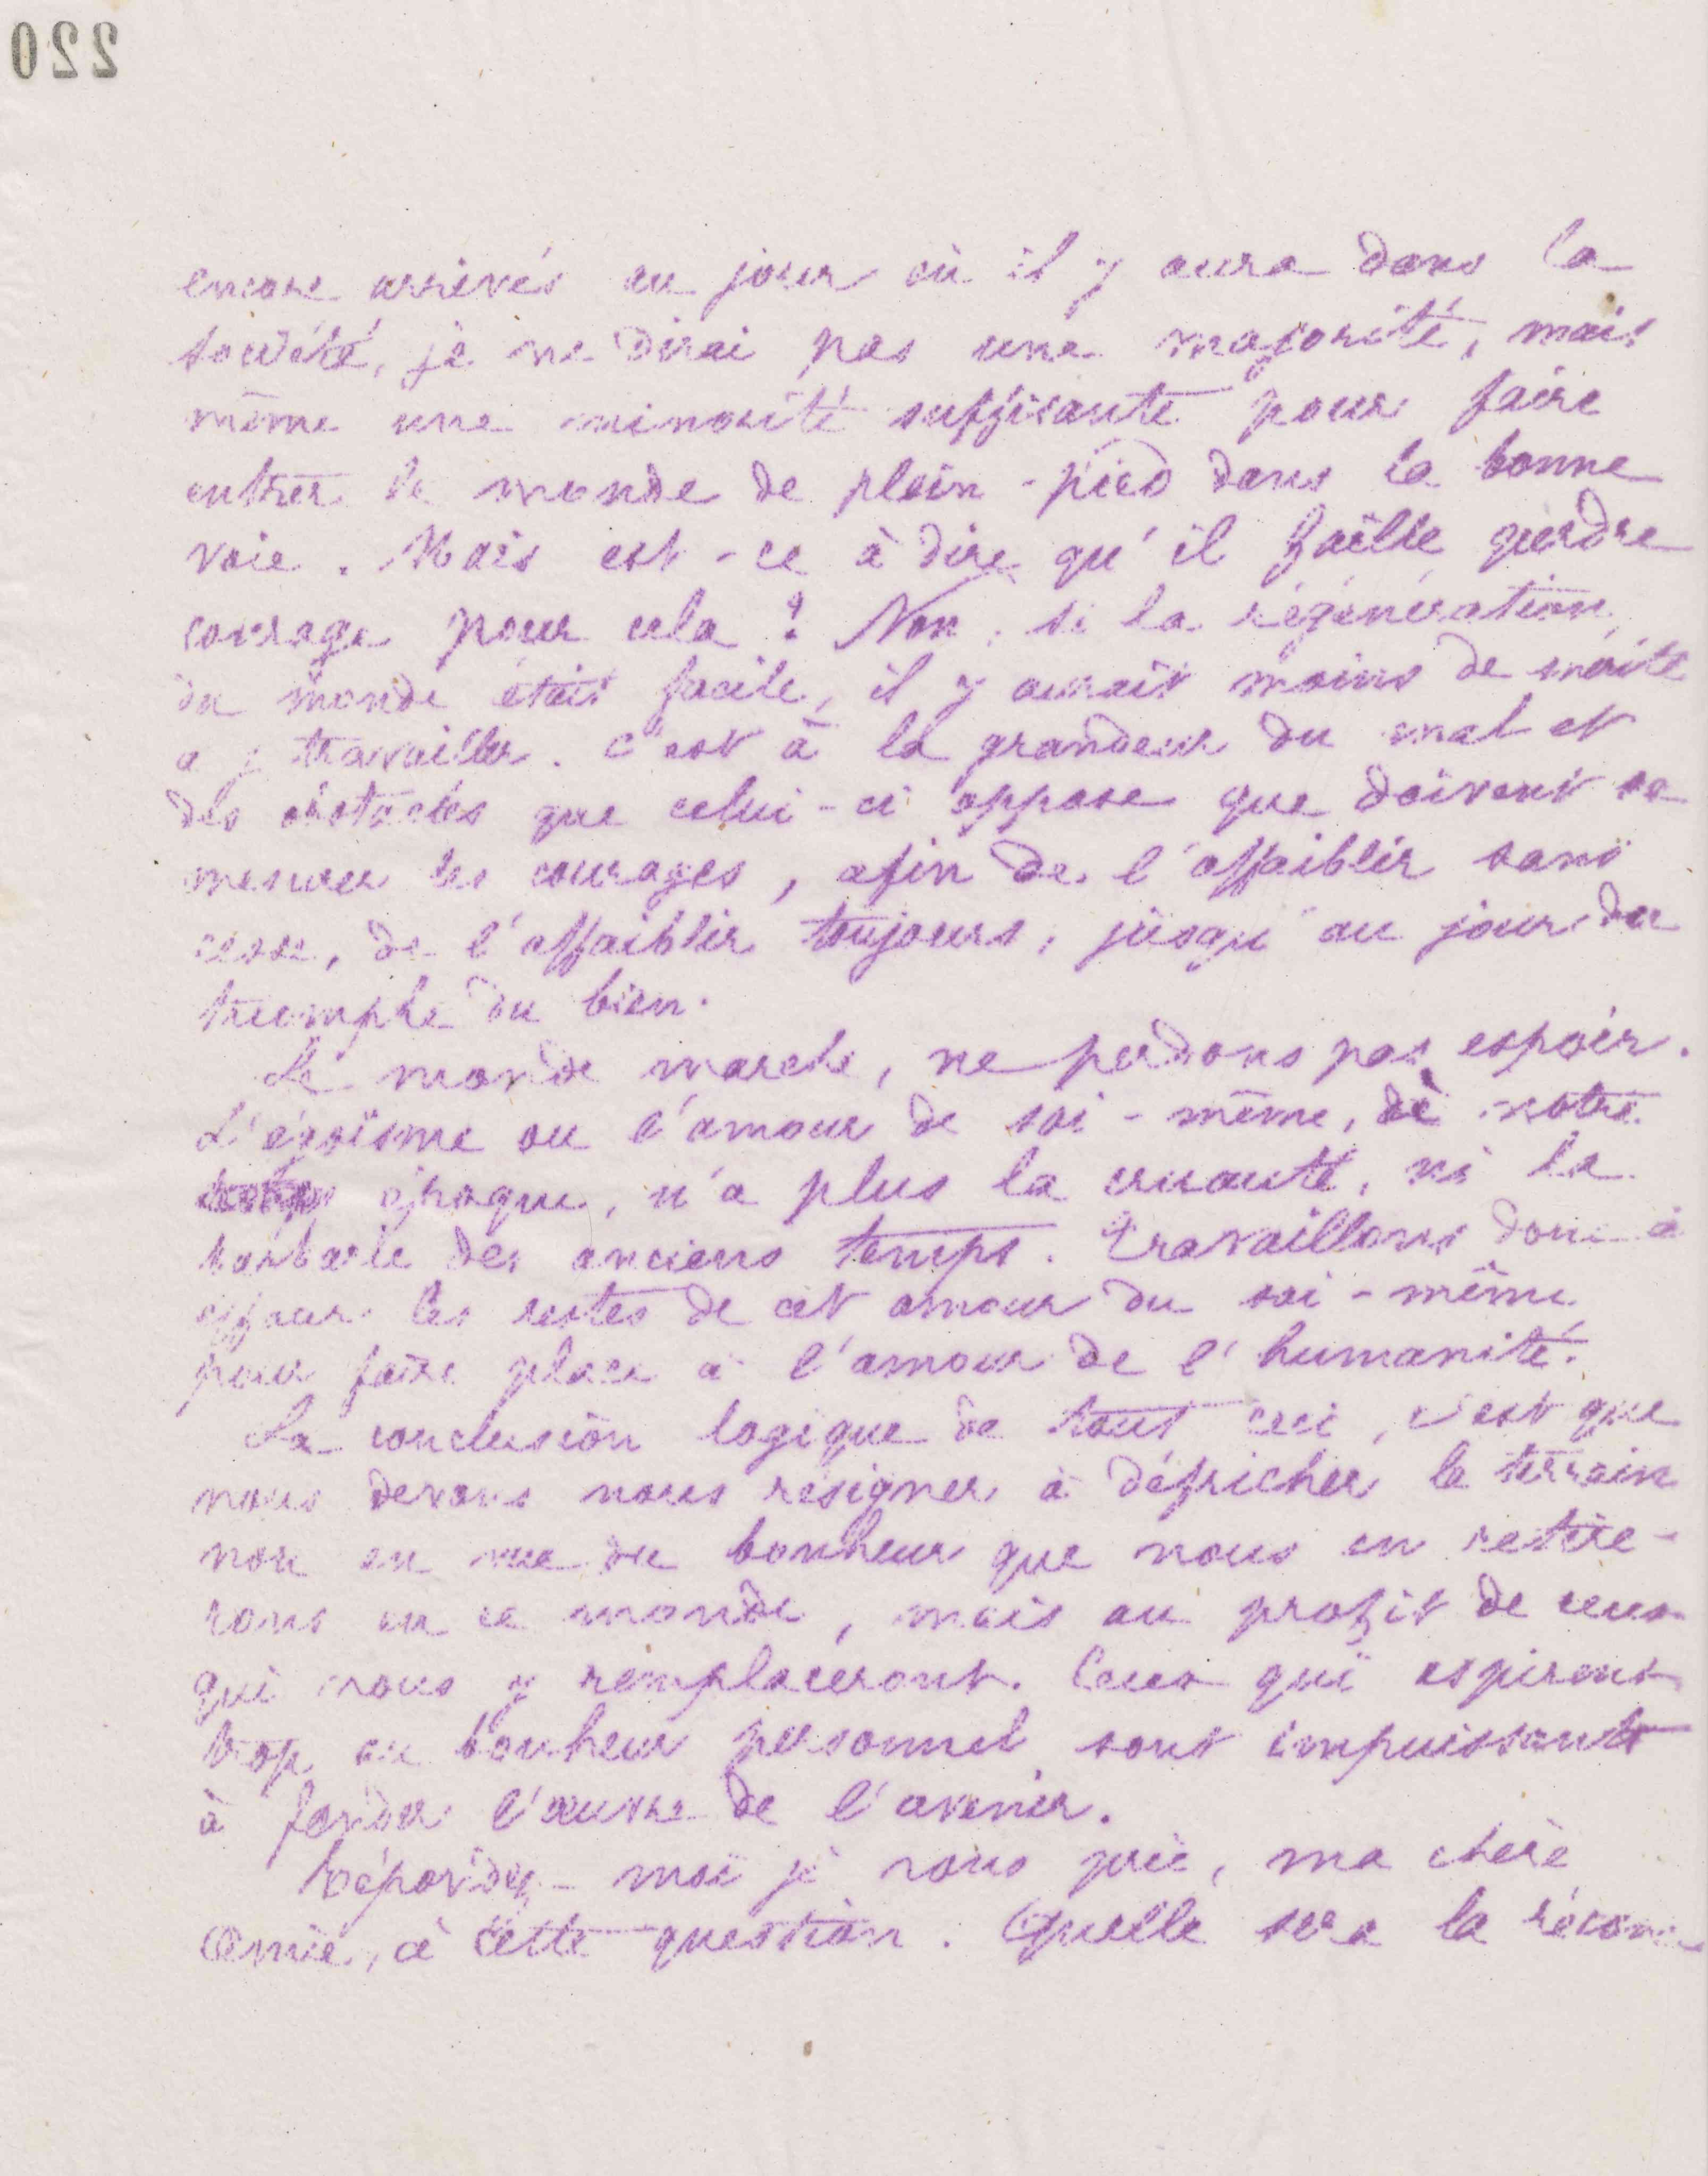 220
encore arrivés au jour où il y aura dans la
société, je ne dirai pas une majorité, mais
même une minorité suffisante pour faire
entrer le monde de plein-pied dans la bonne
voie. Mais est-ce à dire qu'il faille perdre
courage pour cela ? Non, si la régénération
du monde était facile, il y aurait moins de mérite
a y travailler. c'est à la grandeur du mal et
des obstacles que celui-ci oppose que doivent se
mesurer les courages, afin de l'affaiblir sans
cesse, de l'affaiblir toujours, jusqu'au jour du
triomphe du bien.
Le monde marche, ne perdons pas espoir.
L'égoïsme ou l'amour de soi-même, de notre
époque, n'a plus la cruauté, ni la
barbarie des anciens temps. travaillons donc à
effacer les restes de cet amour du soi-même
pour faire place à l'amour de l'humanité.
La conclusion logique de tout ceci, c'est que
nous devons nous résigner à défricher le terrain
non en vue du bonheur que nous en retire-
rons en ce monde, mais au profit de ceux
qui nous y remplaceront. Ceux qui aspirent
trop au bonheur personnel sont impuissants
à fonder l'œuvre de l'avenir.
Répondez-moi je vous prie, ma chère
Amie, à cette question. Quelle sera la récom